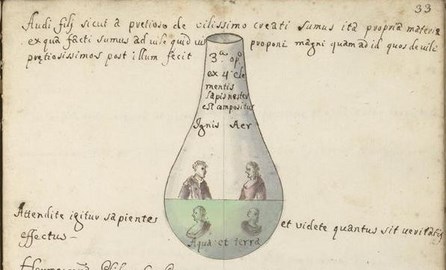 33
Audi fili sicut à pretioso de vilissimo creati sumus ita propria materia
ex qua facti sumus ad vile quid vis proponi magni quam ad id quos de vili
pretiosissimos post illum fecit
3ª op.
ex 4 ele
mentis
lapis nester
est compositus
Ignis Aer
Attendite igitur sapientes
et videte quantus sit veritatis
effectus
Aqua et terra